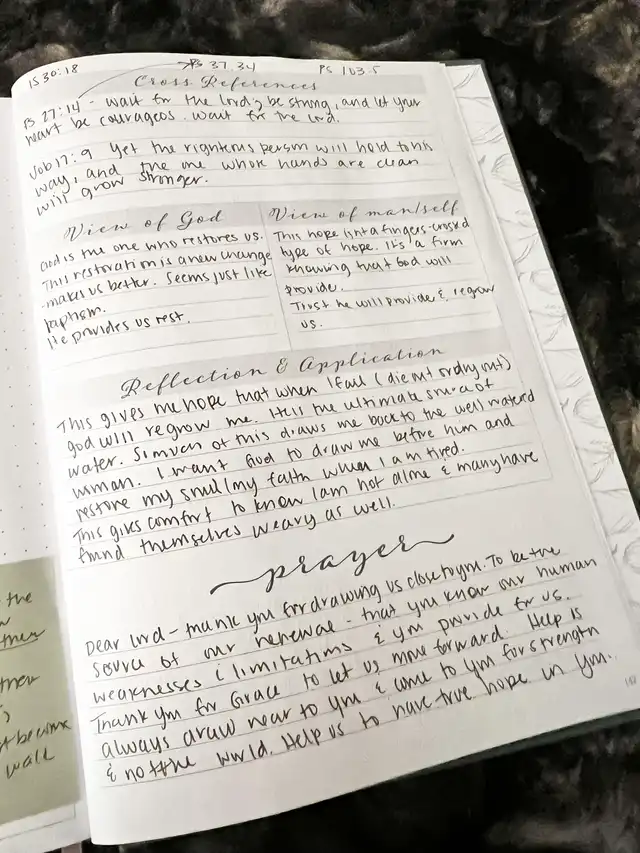 IS 30:18 → PS 37:34 PS 103:5
Cross References
PS 27:14 - wait for the Lord; be strong, and let your
heart be courageos. wait for the Lord.
Job 17:9 Yet the righteous person will hold to his
way, and the one whose hands are clean
will grow stronger.
View of God
God is the one who restores us.
This restoration is a new change
-makes us better. Seems just like
baptism.
He provides us rest.
View of man/self
This hope isnt a fingers-crossed
type of hope. It's a firm
knowing that God will
provide.
Trust he will provide & regrow
us.
Reflection & Application
This gives me hope that when I fail (die out or dry out)
god will regrow me. He is the ultimate source of
water. So much of this draws me back to the well watered
woman. I want God to draw me before him and
restore my soul/my faith when I am tired.
This gives comfort to know I am not alone & many have
found themselves weary as well.
prayer
Dear Lord - thank you for drawing us close to you. To be the
source of our renewal - that you know our human
weaknesses & limitations & you provide for us.
Thank you for Grace to let us move forward. Help us
always draw near to you & come to you for strength
& not the world. Help us to have true hope in you.
the
ther
ther
t become
wall